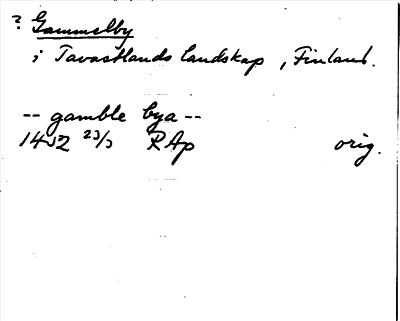 ? Gammelby
i Tavastlands landskap, Finland.
-- gamble bya --
1452 23/3 RAp orig.